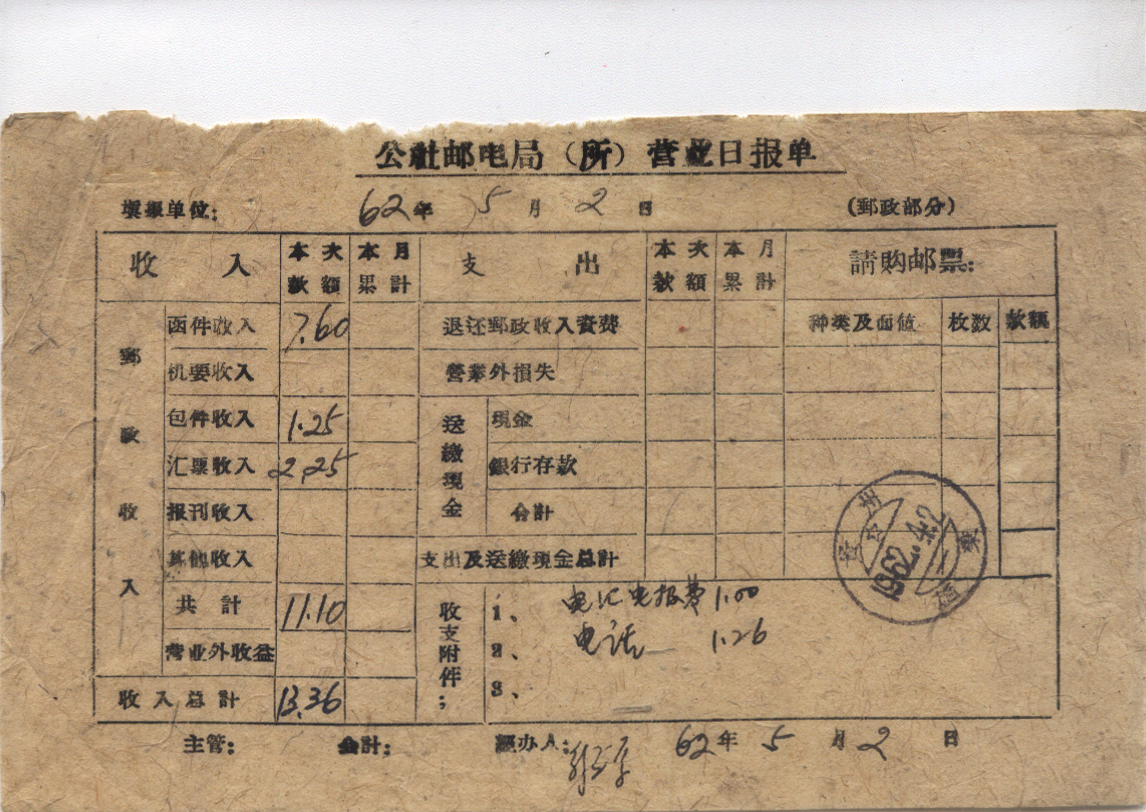 公社邮电局（所）营业日报单
填报单位： 62年 5月 2日 （郵政部分）
收入 本次款額 本月累計 支出 本次款額 本月累計 請购邮票：
郵政收入 函件收入 7.60 退还郵政收入資費 种类及面值 枚数 款額
机要收入 营業外損失
包件收入 1.25 送繳現金 現金
汇票收入 2.25 銀行存款
报刊收入 合計
其他收入 支出及送繳現金总計
共計 11.10 收支附件： 1、 电汇电报费 1.00
营业外收益 2、 电话 1.26
收入总計 13.36 3、
主管： 会計： 經办人： 62年 5月 2日
1962.4.2